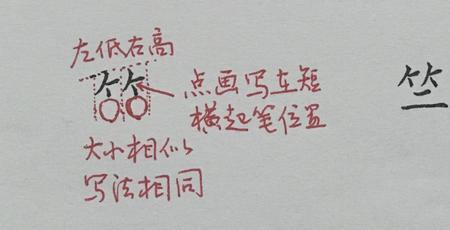 左低右高
点画写在短
横起笔位置
大小相似
写法相同